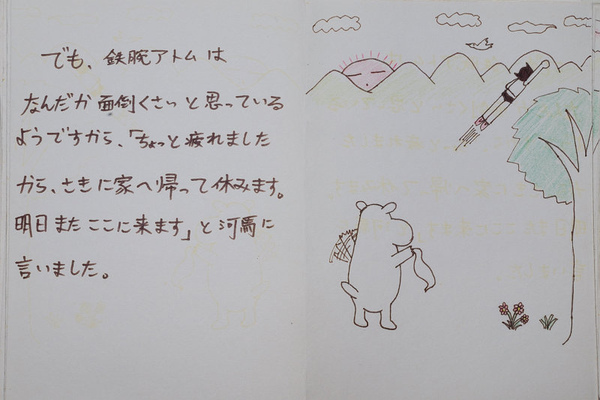 でも、鉄腕アトムは
なんだか面倒くさいと思っている
ようですから、「ちょっと疲れました
から、さきに家へ帰って休みます。
明日またここに来ます」と河馬に
言いました。